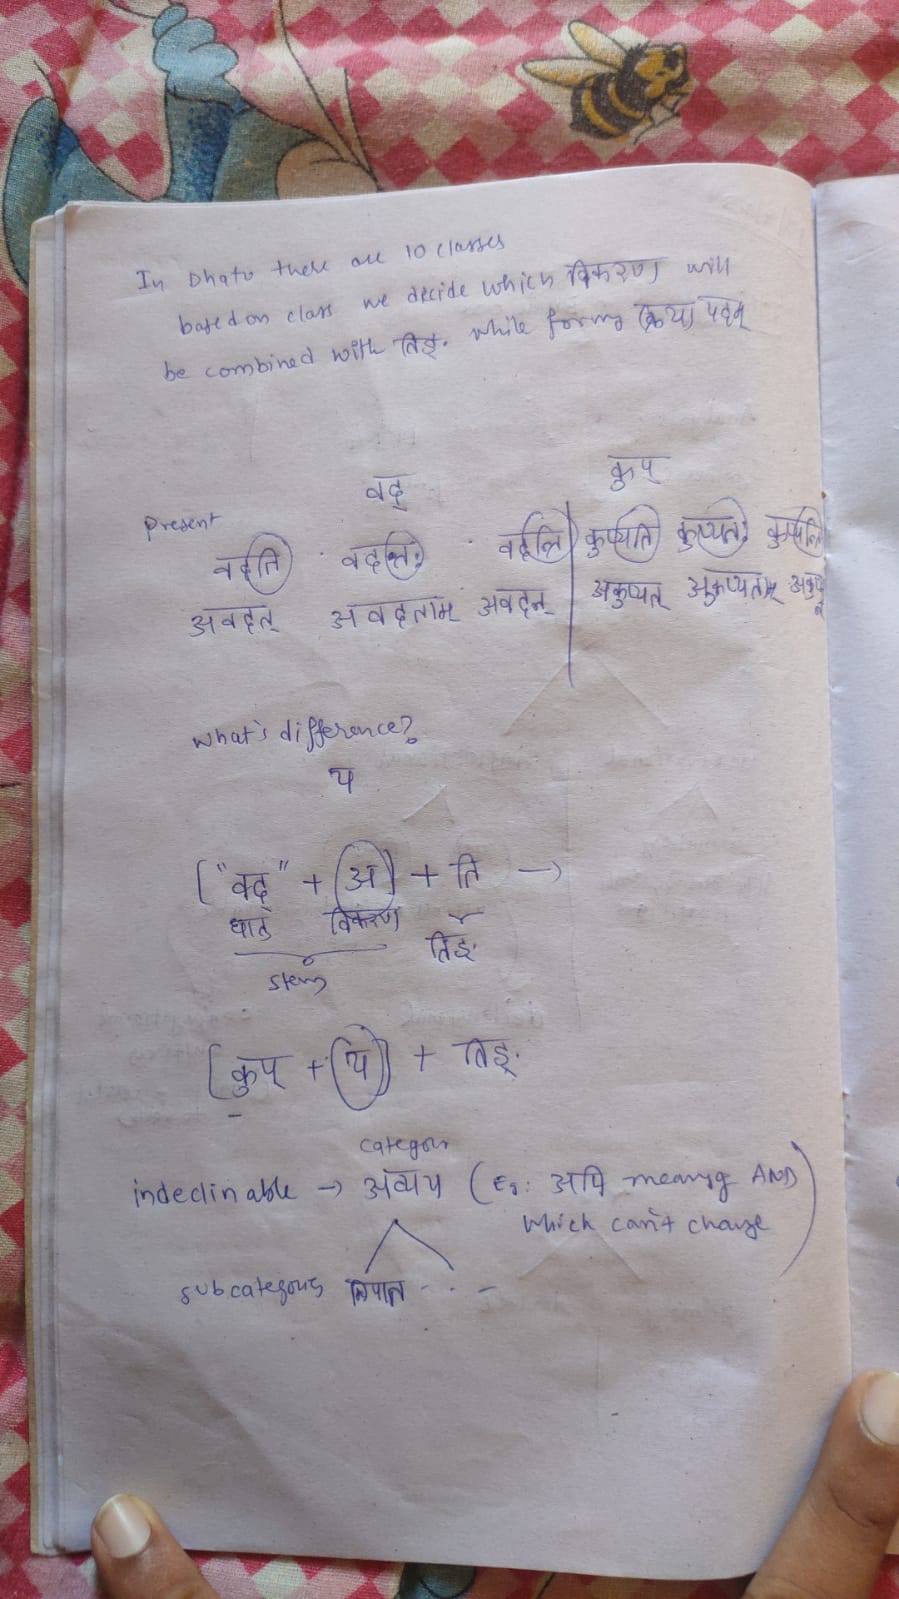 In Dhatu there are 10 classes
based on class we decide which विकरण will
be combined with तिङ्. While forming क्रियापदम्
वद् कुप्
Present
वदति वदन्तः वदन्ति कुप्यति कुप्यतः कुप्यन्ति
अवदत् अवदताम् अवदन् अकुप्यत् अकुप्यताम्
What's difference?
य
["वद्" + अ] + ति →
धातु विकरण तिङ्
stem
[कुप् + य] + तिङ्
category
indeclinable → अव्यय (Eg: अपि meaning AND
which can't change)
subcategories निपात - . . -